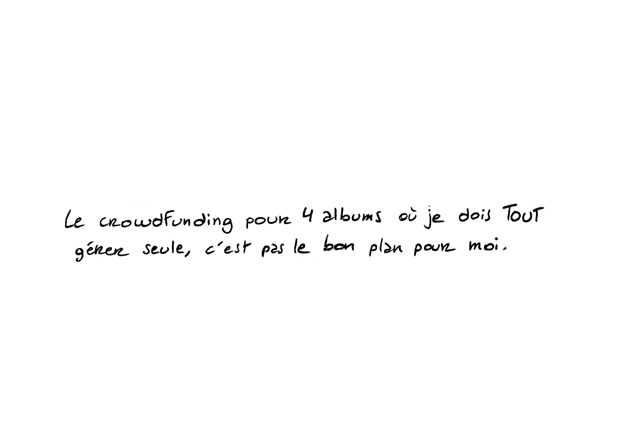 Le crowdfunding pour 4 albums où je dois TOUT
gérer seule, c'est pas le bon plan pour moi.